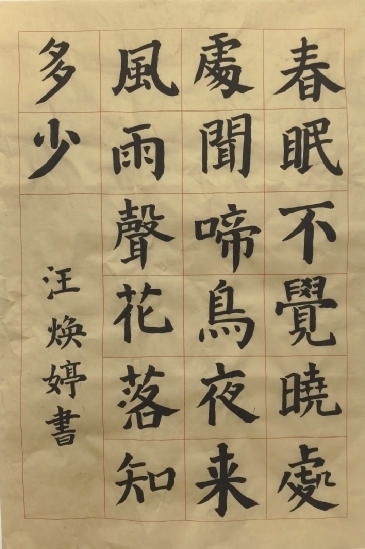 春眠不覺曉處
處聞啼鳥夜来
風雨聲花落知
多少
汪焕婷書